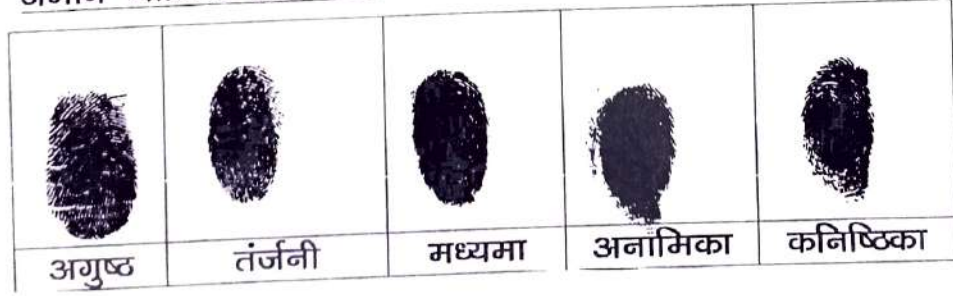 अगुष्ठ तंर्जनी मध्यमा अनामिका कनिष्ठिका